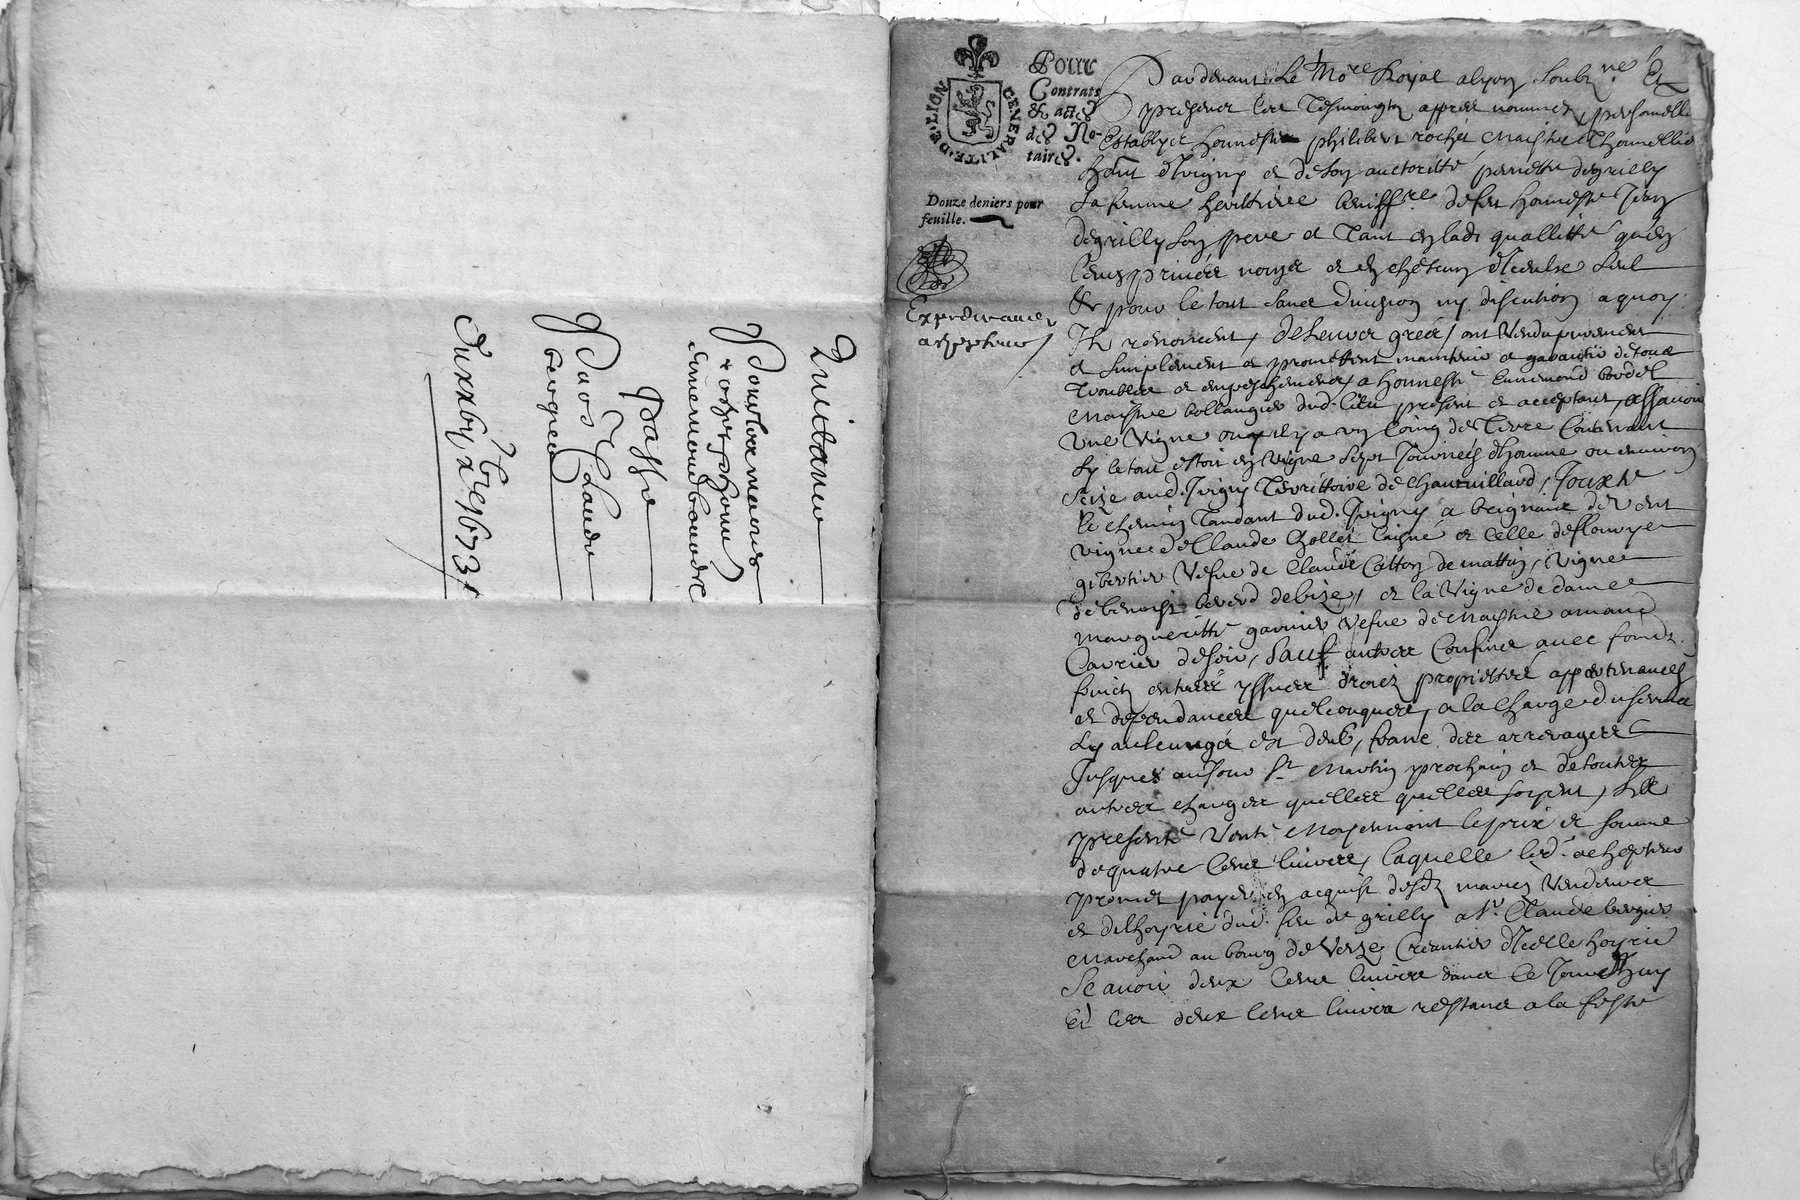 Quittance
Pour les mariés
rochet
d'ennemond bourdel
Passé
Par Sr Claude
bergier
Du xxbj xbre 1673
GENERALITE DE LION
Pour
Contrats
& actes
des No-
taires.
Douze deniers pour
feuille.
Expedié
achepteur
Pardevant Le Nore Royal a lyon soubzne Et
presence les Tesmoingtz appres nommez personelle
establys honneste philibert rochet maistre
d'Ivigny et de son auctoritté pernette degrilly
sa femme herittiere beniffre de feu honneste Jean
degrilly son pere et Tant en lad quallitté quen
leurs privés noms et en chescun d'iceulx seul
& pour le tout sans division ny discution a quoy
Ilz renoncent, de leurs grés, ont Vendu purement
et simplement et promettent maintenir et garantir de tous
Troubles et empeschements a honneste Ennemond bordel
maistre bollangier dud. lieu present et acceptant, assavoir
Une Vigne ou il y a un Coing de Terre Contenant
sy le tout estoit en Vigne sept Journées d'homme ou environ
size aud. Ivigny Territtoire de Chantuillard, Jouxte
le chemin Tandant dud. Ivigny a de Vent
vigne de Claude Chollet laisné et Celle de
Vefve de Claude Catton de mattin, Vigne
de benoist de bize, et la Vigne de dame
margueritte garnier Vefve de maistre amand
de soir, Sauf autres Confins avec fondz
fruictz entrées yssues droictz proprietés appartenances
et deppendances quelconques, a la Charge du servis
sy aulcunge est deub, franc des arrerages
Jusques au Jour St Martin prochain et de toutes
autres charges quelles quelles soyent, Lad
presente Vente Moyennant le prix et somme
de quatre Cens livres, laquelle led. achepteur
promet payer en acquist desd. mariez Vendeurs
et de lhoyrie dud. feu de grilly a Sr. Claude bergier
Marchand au bourg de Verze Creantier d'Icelle hoyrie
Scavoir deux Cens livres dans Ce Jourdhuy
Et les deux Cens livres restans a la feste